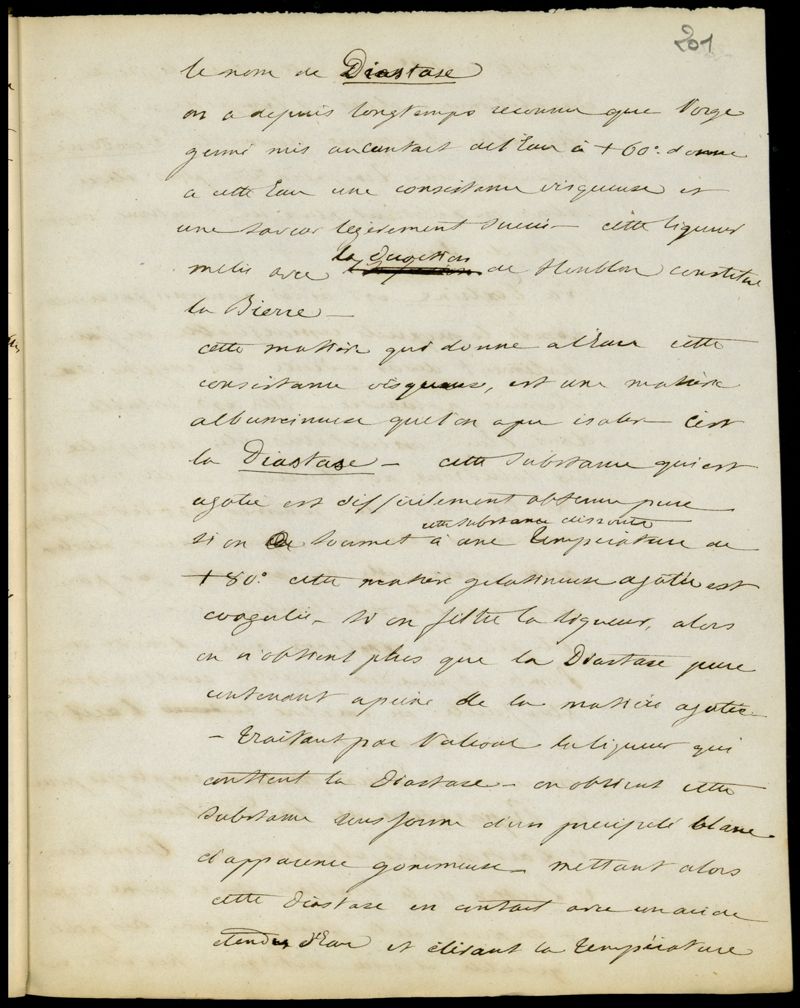 201
le nom de Diastase
on a depuis longtemps reconnu que l'orge
germé mis au contact de l'Eau à +60° donne
a cette Eau une consistance visqueuse et
une saveur legerement sucrée — cette liqueur
melée avec la de Houblon constitue
la Bierre —
cette matiere qui donne a l'Eau cette
consistance visqueuse, est une matiere
albumineuse que l'on a pu isoler — C'est
la Diastase — cette substance qui est
azotée est difficilement obtenue pure
cette substance dissoute
si on soumet à une Température de
+80° cette matiere gelatineuse azotée est
coagulée — si on filtre la liqueur, alors
on n'obtient plus que la Diastase pure
contenant a peine de la matiere azotée
— Traitant par l'alcool la liqueur qui
contient la Diastase — on obtient cette
substance sous forme d'un precipité blanc
d'apparence gommeuse — mettant alors
cette Diastase en contact avec un acide
etendu d'Eau et élevant la Température